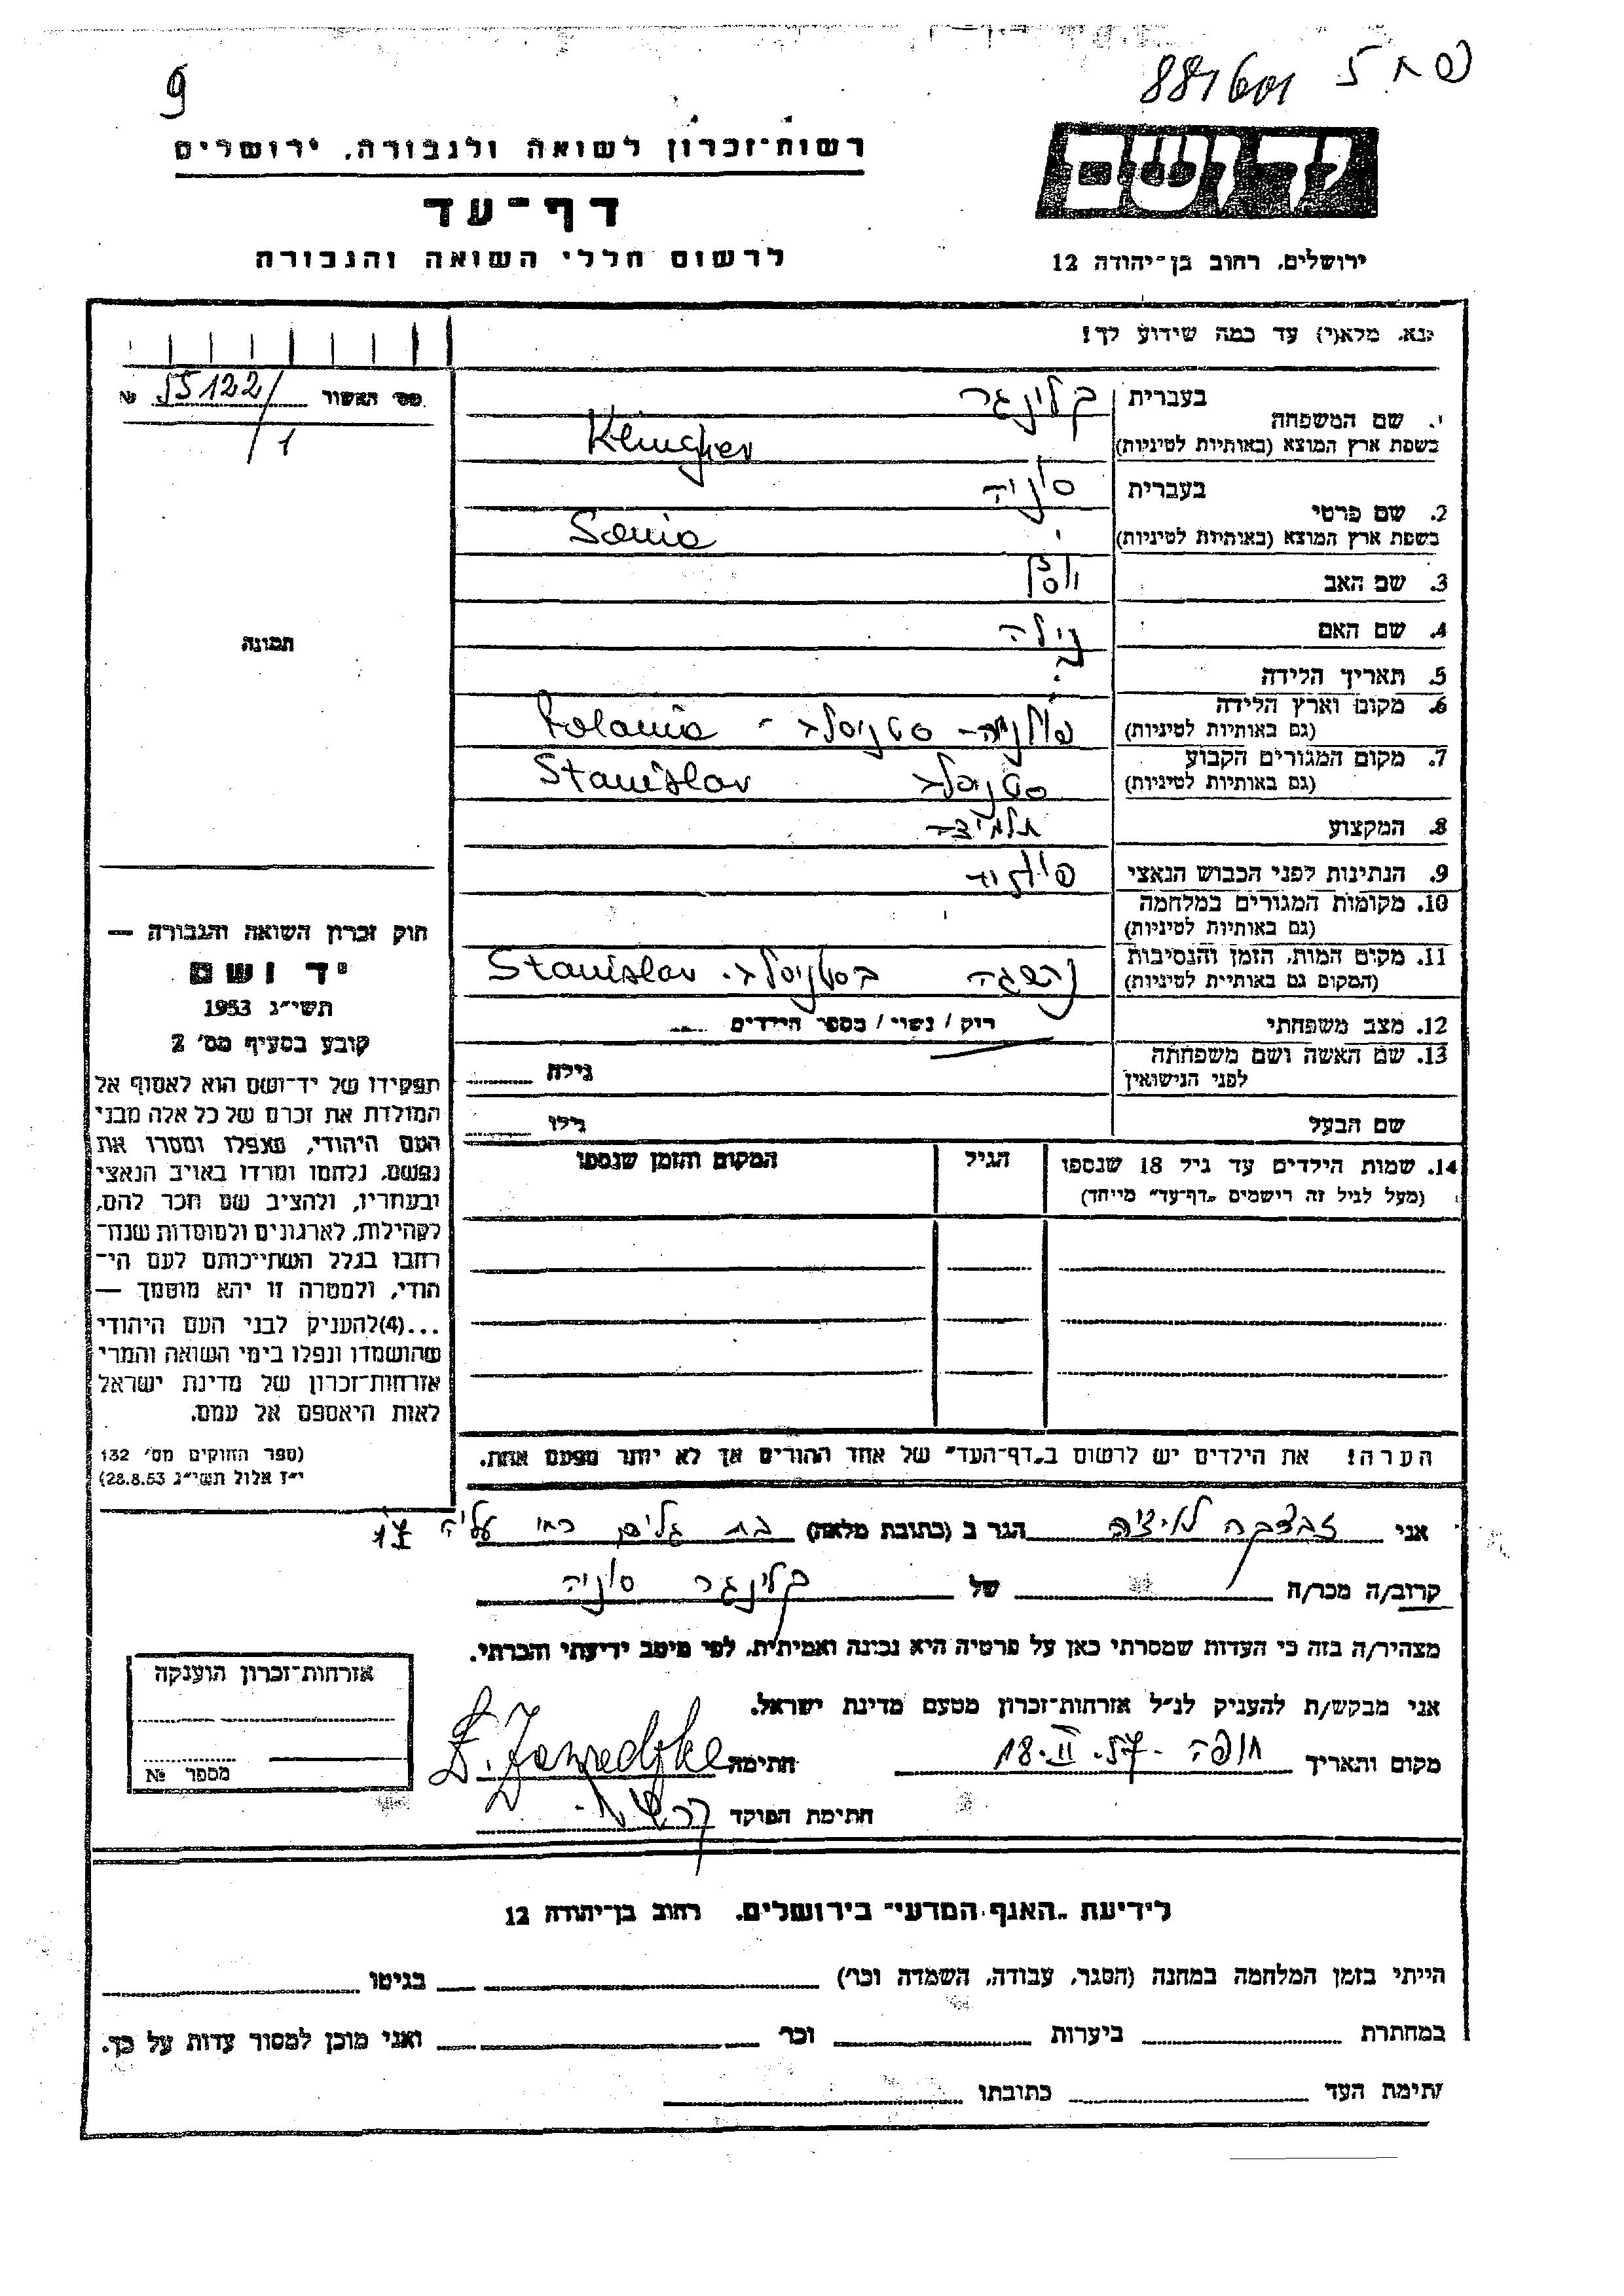 9
רשות-זכרון לשואה ולגבורה, ירושלים
דף-עד
לרשום חללי השואה והגבורה
יד ושם
ירושלים, רחוב בן-יהודה 12
נא מלא(י) עד כמה שידוע לך!
מס׳ האשור № 55122/1
1. שם המשפחה בעברית קלינגר
בשפת ארץ המוצא (באותיות לטיניות) Klingher
2. שם פרטי בעברית סוניה
בשפת ארץ המוצא (באותיות לטיניות) Sonia
3. שם האב
4. שם האם
5. תאריך הלידה ?
6. מקום וארץ הלידה (גם באותיות לטיניות) פולניה - סטניסלב - Polania
7. מקום המגורים הקבוע (גם באותיות לטיניות) סטניסלב Stanislav
8. המקצוע תלמידה
9. הנתינות לפני הכבוש הנאצי
10. מקומות המגורים במלחמה (גם באותיות לטיניות)
11. מקום המות, הזמן והנסיבות (המקום גם באותיות לטיניות) נהרגה בסטניסלב. Stanislav
12. מצב משפחתי רוק / נשוי / מספר הילדים
13. שם האשה ושם משפחתה לפני הנישואין גילה
שם הבעל גילו
14. שמות הילדים עד גיל 18 שנספו הגיל המקום והזמן שנספו
(מעל לגיל זה רישמים „דף-עד" מייחד)
הערה! את הילדים יש לרשום ב„דף-העד" של אחד ההורים אך לא יותר מפעם אחת.
תמונה
חוק זכרון השואה והגבורה —
יד ושם
תשי״ג 1953
קובע בסעיף מס׳ 2
תפקידו של יד-ושם הוא לאסוף אל
המולדת את זכרם של כל אלה מבני
העם היהודי, שנפלו ומסרו את
נפשם, נלחמו ומרדו באויב הנאצי
ובעוזריו, ולהציב שם וזכר להם,
לקהילות, לארגונים ולמוסדות שנח־
רבו בגלל השתייכותם לעם הי־
הודי, ולמטרה זו יהא מוסמך —
...(4)להעניק לבני העם היהודי
שהושמדו ונפלו בימי השואה והמרי
אזרחות-זכרון של מדינת ישראל
לאות היאספם אל עמם.
(ספר החוקים מס׳ 132
י״ז אלול תשי״ג 28.8.53)
אני הגר ב (כתובת מלאה) בת גלים
קרוב/ה מכר/ה של קלינגר סוניה
מצהיר/ה בזה כי העדות שמסרתי כאן על פרטיה היא נכונה ואמיתית, לפי מיטב ידיעתי והכרתי.
אני מבקש/ת להעניק לנ״ל אזרחות-זכרון מטעם מדינת ישראל.
מקום ותאריך חיפה 18.II.57 חתימה
חתימת הפוקד
אזרחות-זכרון הוענקה
מספר №
לידיעת „האגף המדעי" בירושלים, רחוב בן-יהודה 12
הייתי בזמן המלחמה במחנה (הסגר, עבודה, השמדה וכו׳) בגיטו
במחתרת ביערות וכו׳ ואני מוכן למסור עדות על כך.
חתימת העד כתובתו